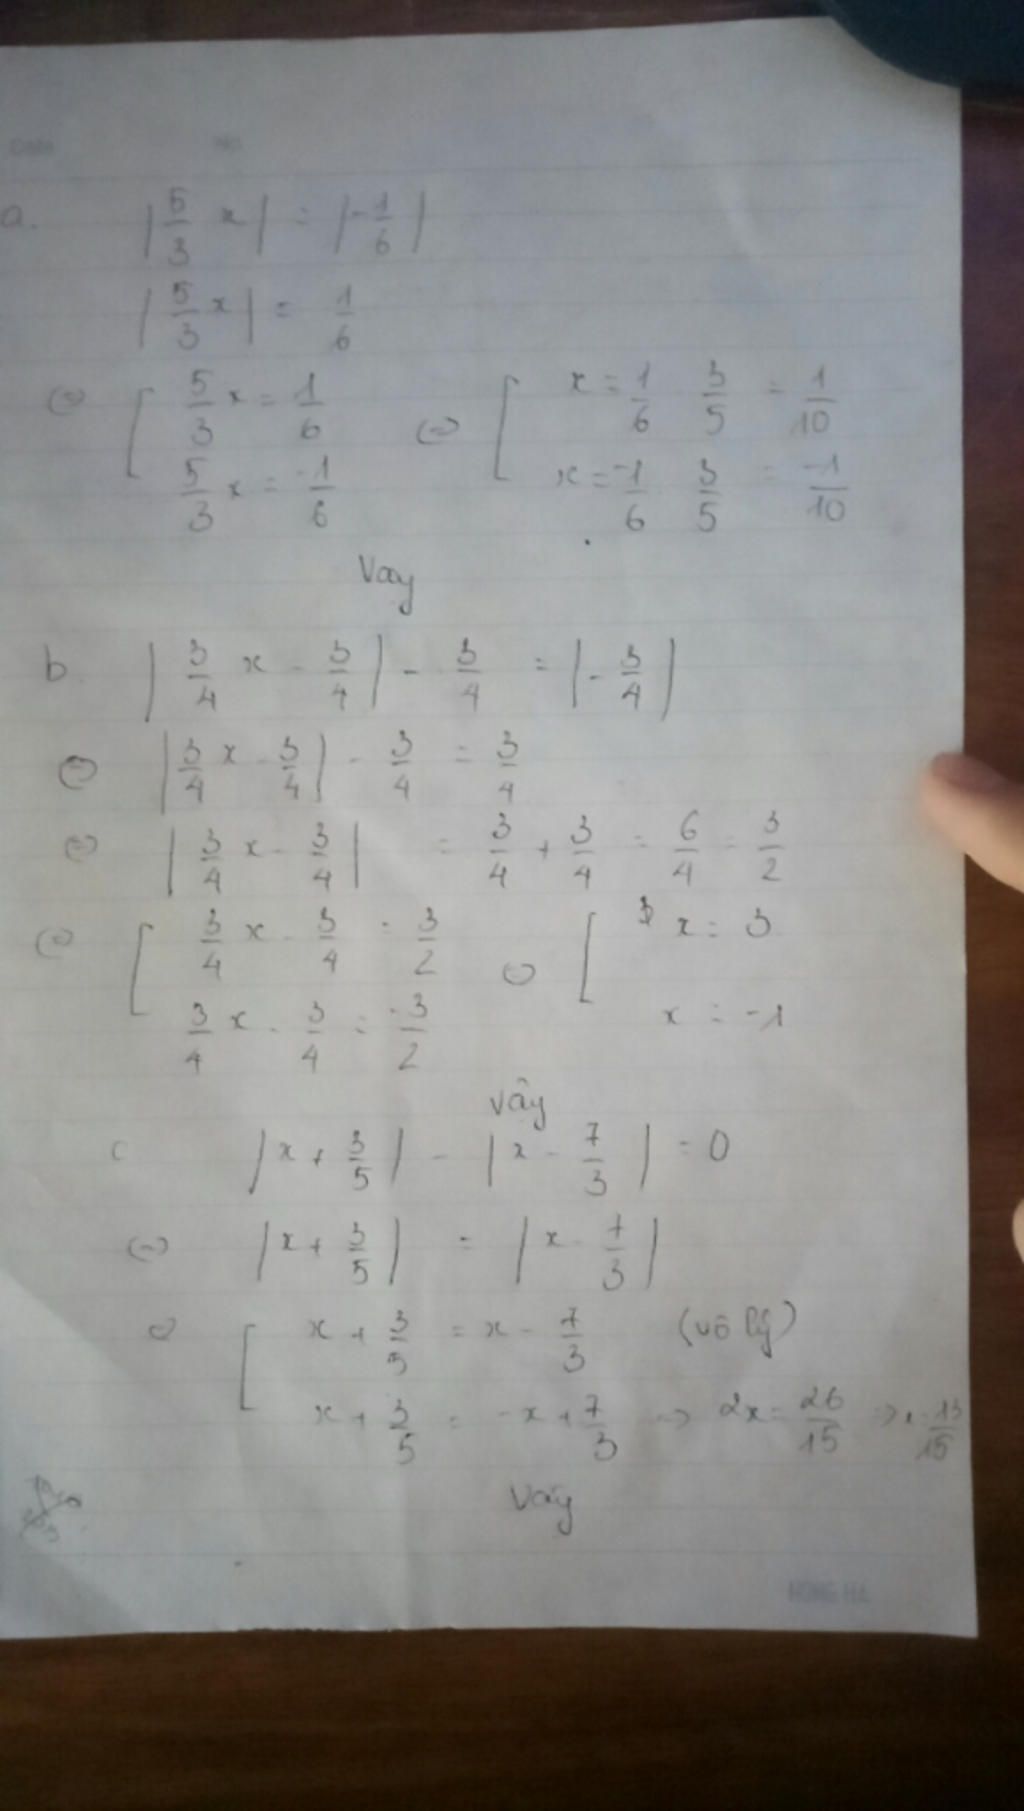 Date No
a. |5/3 x| = |-1/6|
|5/3 x| = 1/6
(=) [ 5/3 x = 1/6 (=) [ x = 1/6 3/5 = 1/10
5/3 x = -1/6 x = -1/6 3/5 = -1/10
Vay
b. |3/4 x - 3/4| - 3/4 = |-3/4|
(=) |3/4 x - 3/4| - 3/4 = 3/4
(=) |3/4 x - 3/4| = 3/4 + 3/4 = 6/4 = 3/2
(=) [ 3/4 x - 3/4 = 3/2 (=) [ x = 3
3/4 x - 3/4 = -3/2 x = -1
vây
c |x + 3/5| - |x - 7/3| = 0
(=) |x + 3/5| = |x - 7/3|
(=) [ x + 3/5 = x - 7/3 (vô lý)
x + 3/5 = -x + 7/3 => 2x = 26/15 => x = 13/15
Vây
HONG HA